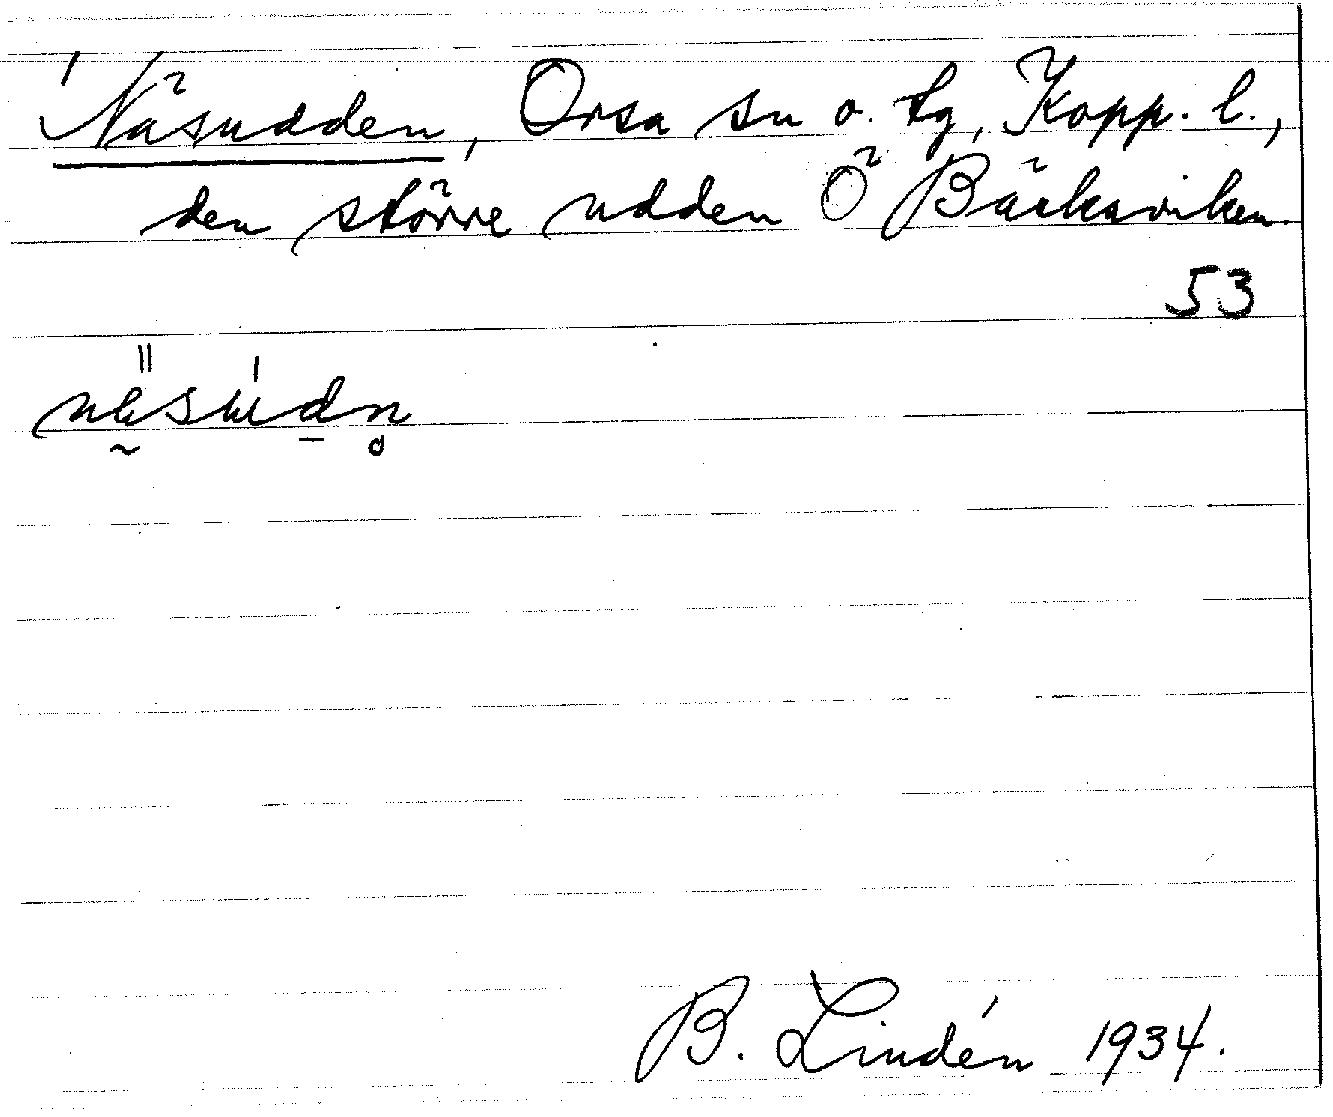 Näsudden, Orsa sn o. tg, Kopp. l.,
den större udden Ö Bäcksviken.
53
B. Lindén 1934.